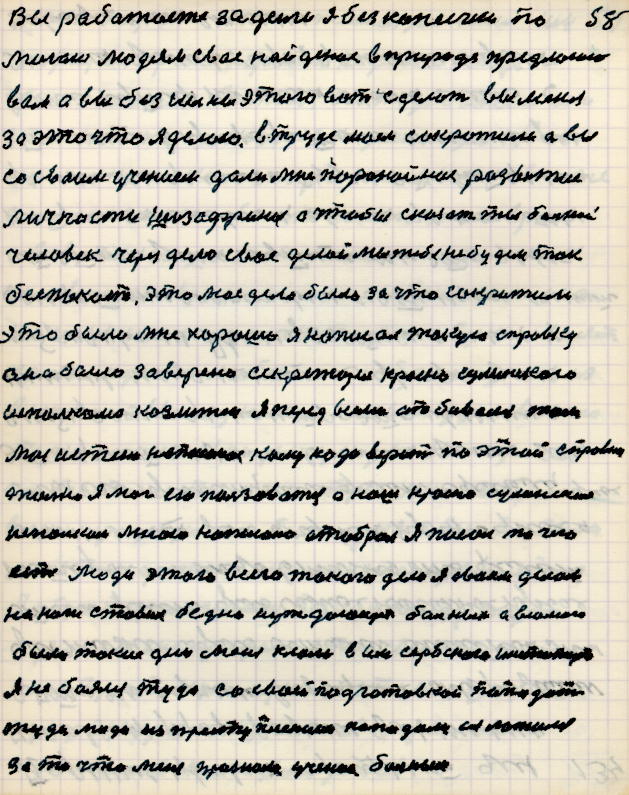 Вы работаете за дело я без конечно по 58
могаю людям свое найденое в природе предлогаю
вам а вы без ни этого вот сделот вы меня
за это что я делаю. в труде моем сократили а вы
со своим учением дали мне поронойное развитие
личности шизафрения а чтобы сказат ты больной
человек через дело свое делай мы тебе не будем так
беспокоит. это мое дело было за что сократили
это было мне хорошо я написал такую справку
она было заверено секретаря красно сулинского
исполкома я перед вами
мое кому надо верит по этой справки
можно я мог его ползоватся а наш красно сулинский
исполком много написано отобрал я писал по чего
люди этого всего такого дела я своим делом
на ноги ставил бедно нуждающих болных а вломого
были такие дни меня клали в им сербского института
я не боялся туда со своей подготовкой попадат
туда люди на попадали ложили
за то что меня признали ученые болным